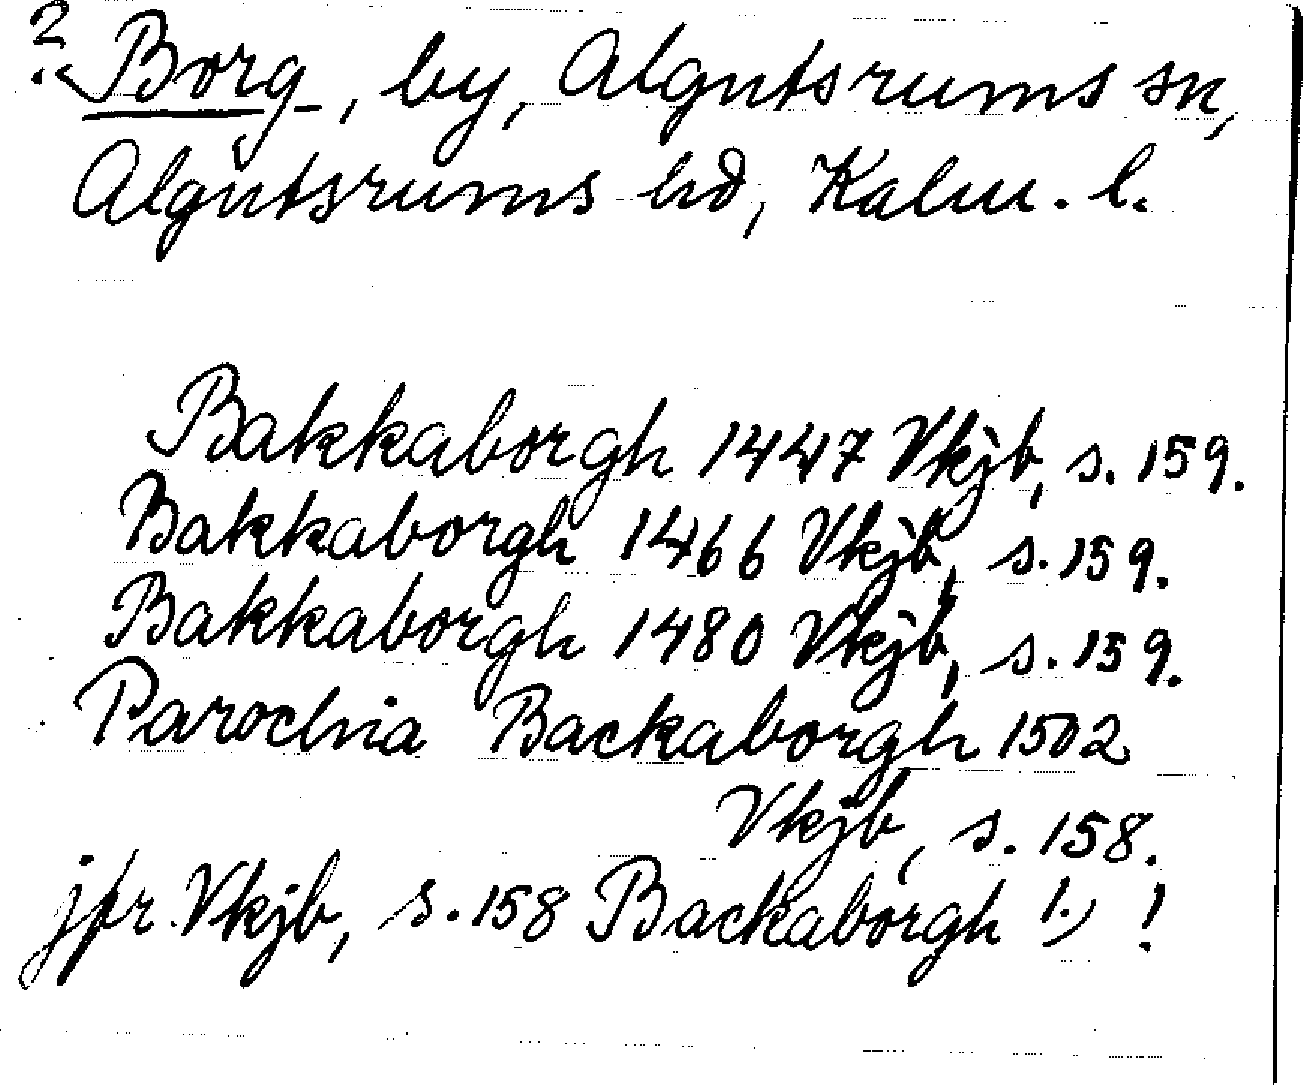 ? Borg, by, Algutsrums sn,
Algutsrums hd, Kalm. l.
Bakkaborgh 1447 Vkjb, s. 159.
Bakkaborgh 1466 Vkjb, s. 159.
Bakkaborgh 1480 Vkjb, s. 159.
Parochia Backaborgh 1502
Vkjb, s. 158.
jfr Vkjb, s. 158 Backaborgh 1.) !